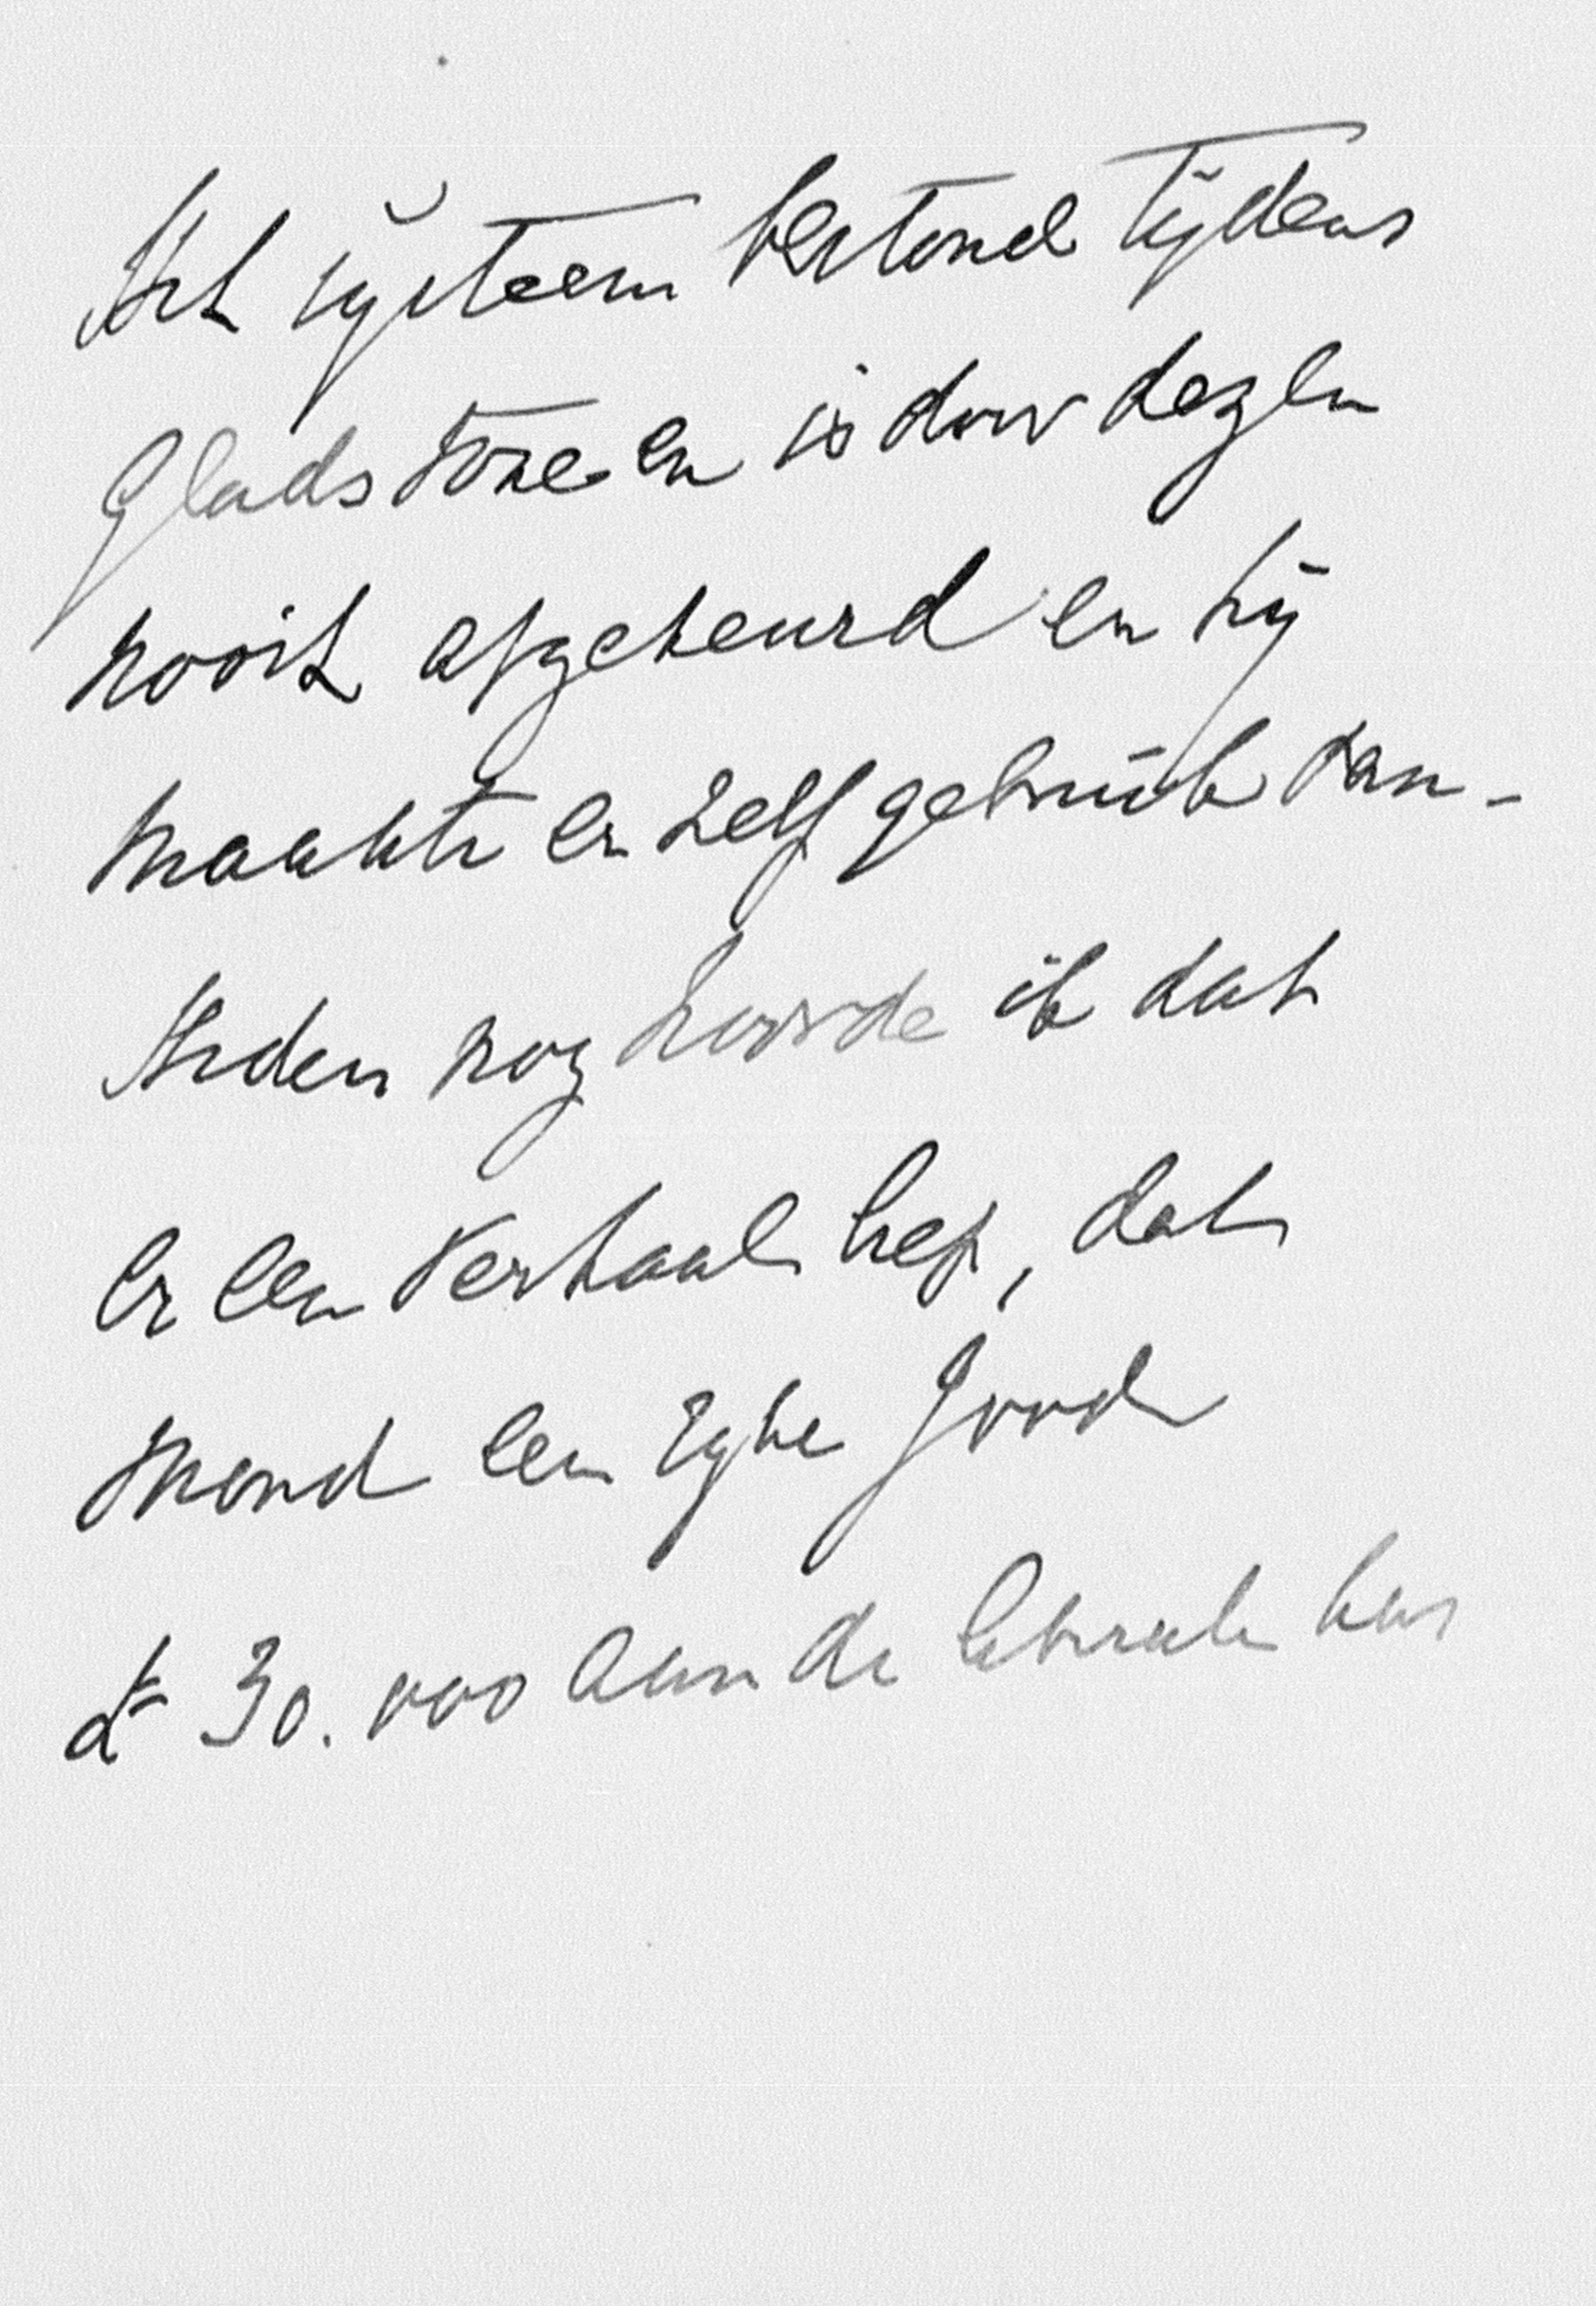 Het systeem bestond tijdens
Gladstone en is door dezen
nooit afgekeurd en hij
maakte er zelf gebruik van -
Heden nog hoorde ik dat
er een verhaal liep, dat
Mond een rijke Jood
£ 30.000 aan de liberale kas